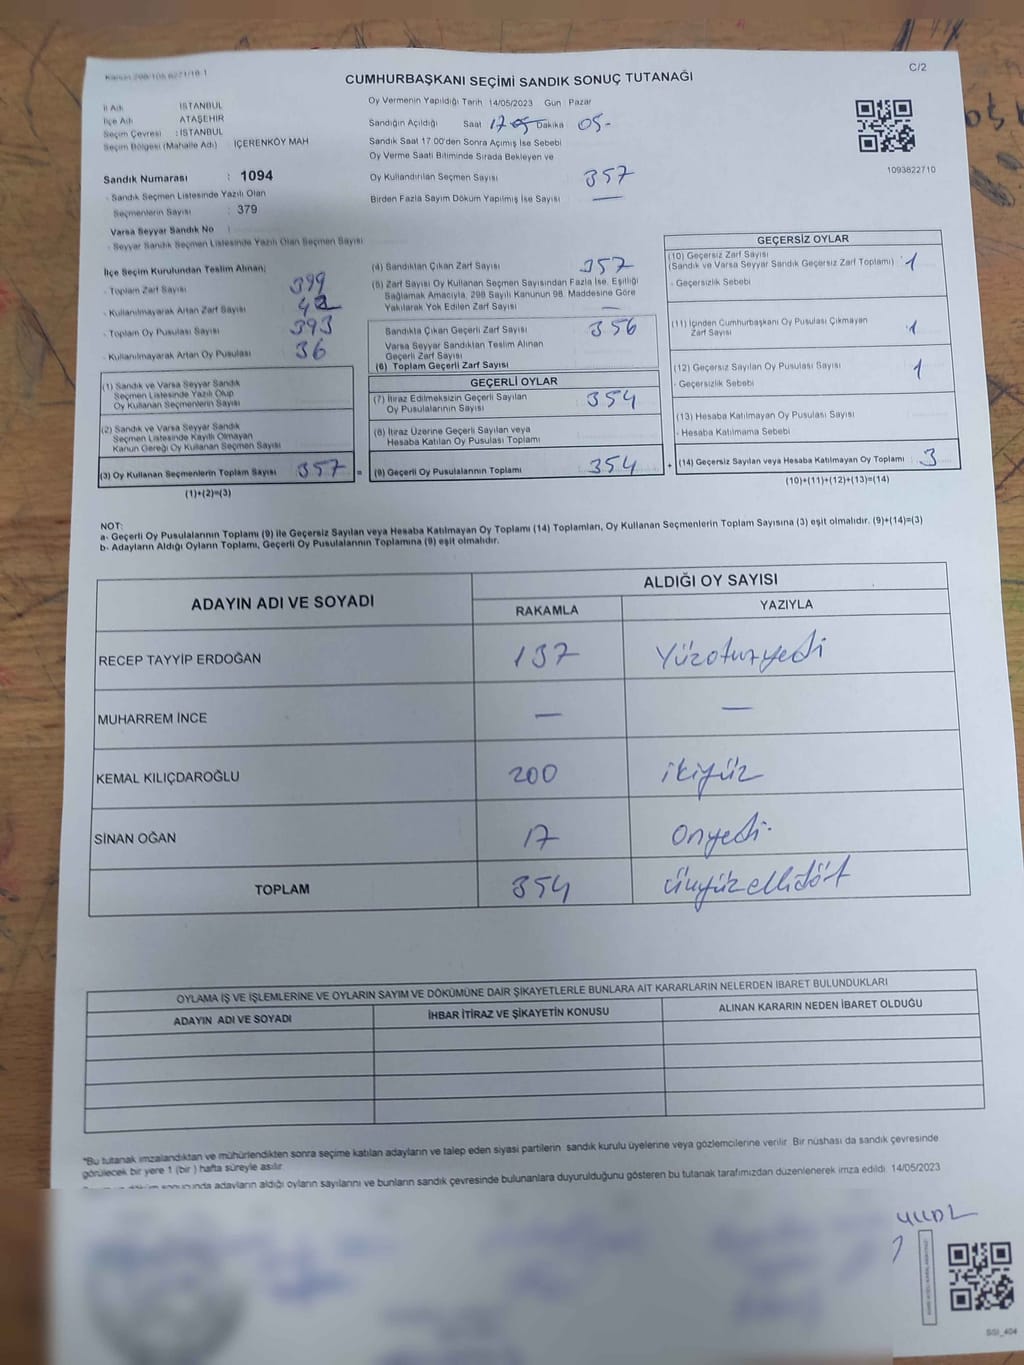 Kanun 298/105,6271/18-1
C/2
CUMHURBAŞKANI SEÇİMİ SANDIK SONUÇ TUTANAĞI
İl Adı : İSTANBUL
İlçe Adı : ATAŞEHİR
Seçim Çevresi : İSTANBUL
Seçim Bölgesi (Mahalle Adı) İÇERENKÖY MAH
Sandık Numarası : 1094
- Sandık Seçmen Listesinde Yazılı Olan
Seçmenlerin Sayısı : 379
Varsa Seyyar Sandık No :
- Seyyar Sandık Seçmen Listesinde Yazılı Olan Seçmen Sayısı
Oy Vermenin Yapıldığı Tarih 14/05/2023 Gün Pazar
Sandığın Açıldığı Saat 17 05 Dakika 05-
Sandık Saat 17.00'den Sonra Açımış İse Sebebi
Oy Verme Saati Bitiminde Sırada Bekleyen ve
Oy Kullandırılan Seçmen Sayısı 357
Birden Fazla Sayım Döküm Yapılmış İse Sayısı —
1093822710
İlçe Seçim Kurulundan Teslim Alınan;
- Toplam Zarf Sayısı 399
- Kullanılmayarak Artan Zarf Sayısı 42
- Toplam Oy Pusulası Sayısı 393
- Kullanılmayarak Artan Oy Pusulası 36
(1) Sandık ve Varsa Seyyar Sandık
Seçmen Listesinde Yazılı Olup
Oy Kullanan Seçmenlerin Sayısı
(2) Sandık ve Varsa Seyyar Sandık
Seçmen Listesinde Kayıtlı Olmayan
Kanun Gereği Oy Kullanan Seçmen Sayısı
(3) Oy Kullanan Seçmenlerin Toplam Sayısı 357 =
(1)+(2)=(3)
(4) Sandıktan Çıkan Zarf Sayısı 357
(5) Zarf Sayısı Oy Kullanan Seçmen Sayısından Fazla İse, Eşitliği
Sağlamak Amacıyla, 298 Sayılı Kanunun 98. Maddesine Göre
Yakılarak Yok Edilen Zarf Sayısı —
Sandıkta Çıkan Geçerli Zarf Sayısı 356
Varsa Seyyar Sandıktan Teslim Alınan
Geçerli Zarf Sayısı
(6) Toplam Geçerli Zarf Sayısı
GEÇERLİ OYLAR
(7) İtiraz Edilmeksizin Geçerli Sayılan
Oy Pusulalarının Sayısı 354
(8) İtiraz Üzerine Geçerli Sayılan veya
Hesaba Katılan Oy Pusulası Toplamı
(9) Geçerli Oy Pusulalarının Toplamı 354 +
GEÇERSİZ OYLAR
(10) Geçersiz Zarf Sayısı
(Sandık ve Varsa Seyyar Sandık Geçersiz Zarf Toplamı) 1
- Geçersizlik Sebebi
(11) İçinden Cumhurbaşkanı Oy Pusulası Çıkmayan
Zarf Sayısı 1
(12) Geçersiz Sayılan Oy Pusulası Sayısı 1
- Geçersizlik Sebebi
(13) Hesaba Katılmayan Oy Pusulası Sayısı
- Hesaba Katılmama Sebebi
(14) Geçersiz Sayılan veya Hesaba Katılmayan Oy Toplamı 3
(10)+(11)+(12)+(13)=(14)
NOT:
a- Geçerli Oy Pusulalarının Toplamı (9) ile Geçersiz Sayılan veya Hesaba Katılmayan Oy Toplamı (14) Toplamları, Oy Kullanan Seçmenlerin Toplam Sayısına (3) eşit olmalıdır. (9)+(14)=(3)
b- Adayların Aldığı Oyların Toplamı, Geçerli Oy Pusulalarının Toplamına (9) eşit olmalıdır.
ADAYIN ADI VE SOYADI ALDIĞI OY SAYISI
RAKAMLA YAZIYLA
RECEP TAYYİP ERDOĞAN 137 Yüzotuzyedi
MUHARREM İNCE — —
KEMAL KILIÇDAROĞLU 200 ikiyüz
SİNAN OĞAN 17 Onyedi.
TOPLAM 354 üçyüzellidört
OYLAMA İŞ VE İŞLEMLERİNE VE OYLARIN SAYIM VE DÖKÜMÜNE DAİR ŞİKAYETLERLE BUNLARA AİT KARARLARIN NELERDEN İBARET BULUNDUKLARI
ADAYIN ADI VE SOYADI İHBAR İTİRAZ VE ŞİKAYETİN KONUSU ALINAN KARARIN NEDEN İBARET OLDUĞU
*Bu tutanak imzalandıktan ve mühürlendikten sonra seçime katılan adayların ve talep eden siyasi partilerin sandık kurulu üyelerine veya gözlemcilerine verilir. Bir nüshası da sandık çevresinde
görülecek bir yere 1 (bir ) hafta süreyle asılır.
sonucunda adayların aldığı oyların sayılarını ve bunların sandık çevresinde bulunanlara duyurulduğunu gösteren bu tutanak tarafımızdan düzenlenerek imza edildi. 14/05/2023
SSI_404